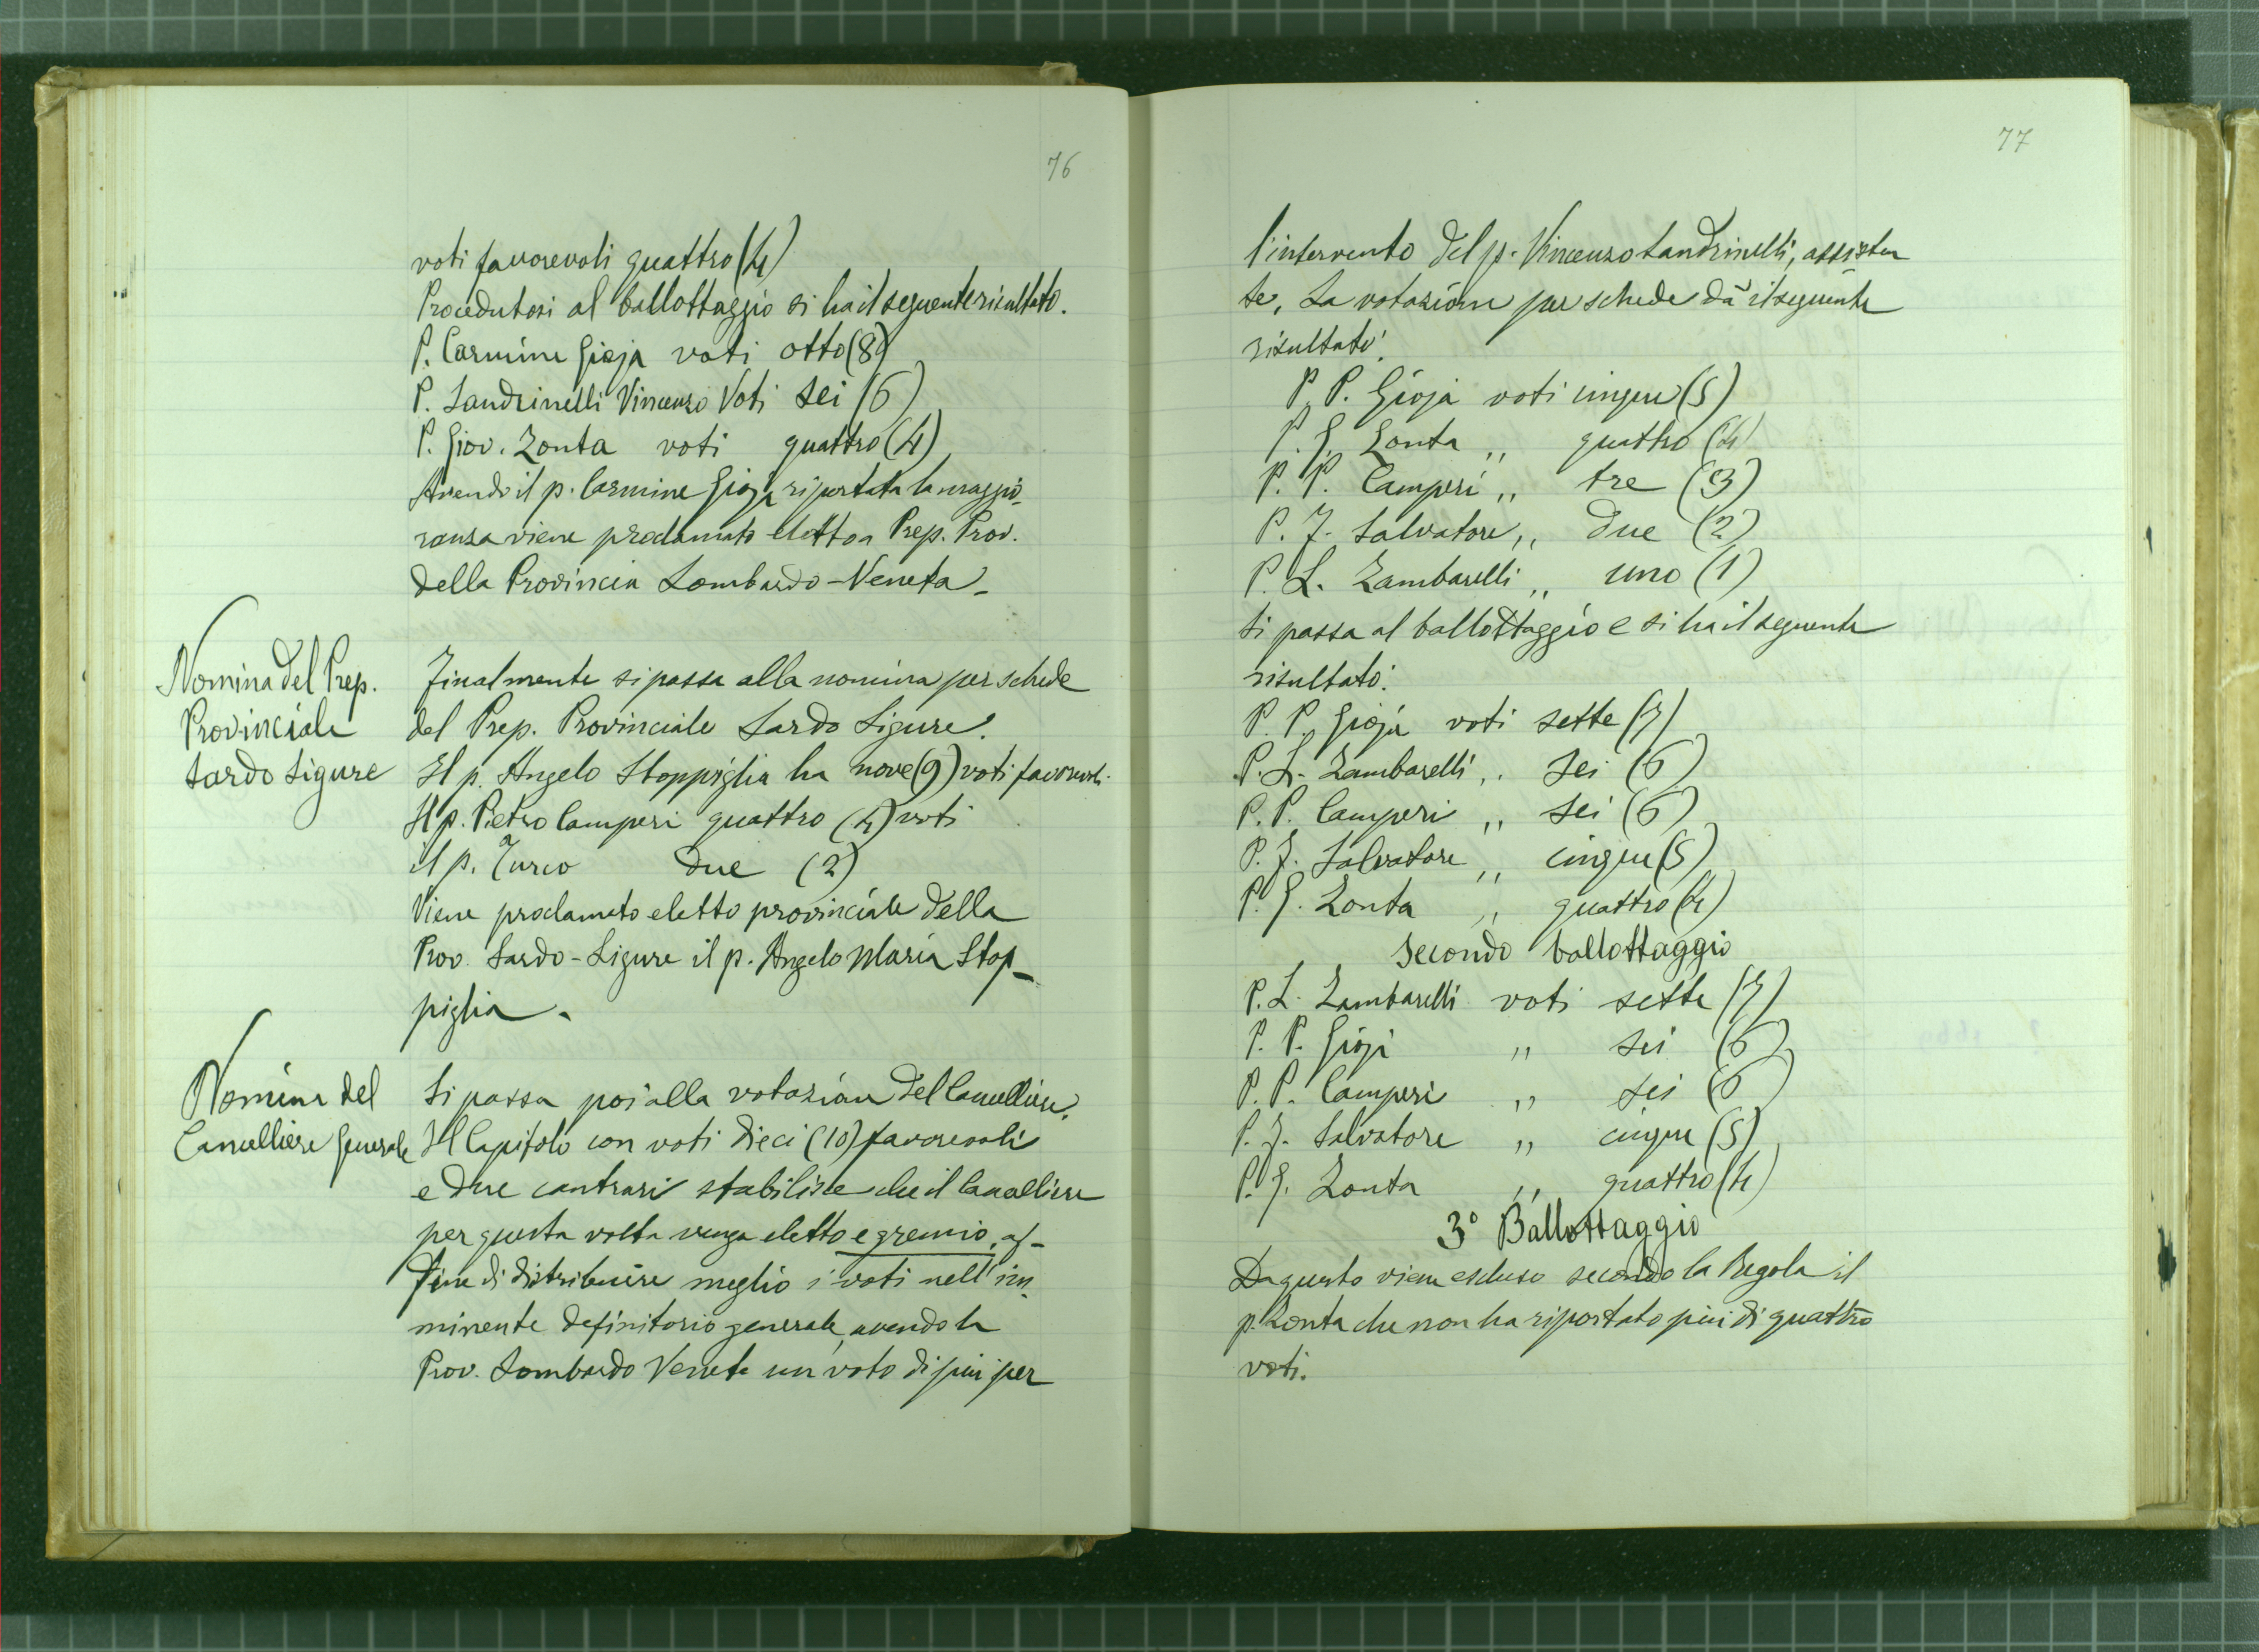 76
voti favorevoli quattro (4)
Procedutosi al ballottaggio si ha il seguente risultato.
P. Carmine Gioja voti otto (8)
P. Landrinelli Vincenzo Voti sei (6)
P. Giov. Zonta voti quattro (4)
Avendo il p. Carmine Gioja riportata la maggio-
ranza viene proclamato eletto a Prep. Prov.
della Provincia Lombardo-Veneta.
Nomina del Prep.
Provinciale
Sardo Ligure
Finalmente si passa alla nomina per schede
del Prep. Provinciale Sardo Ligure.
Il p. Angelo Stoppiglia ha nove (9) voti favorevoli.
Il p. Pietro Camperi quattro (4) voti
il p. Turco due (2)
Viene proclamato eletto provinciale della
Prov. Sardo-Ligure il p. Angelo Maria Stop-
piglia.
Nomina del
Cancelliere Generale
Si passa poi alla votazione del Cancelliere.
Il Capitolo con voti dieci (10) favorevoli
e due contrari stabilisce che il Cancelliere
per questa volta venga eletto e gremio, af-
fine di distribuire meglio i voti nell'im-
minente definitorio generale, avendo la
Prov. Lombardo Veneta un voto di più per
77
l'intervento del p. Vincenzo Landrinelli, assisten
te, La votazione per schede dà il seguente
risultato:
P. P. Gioja voti cinque (5)
P. G. Zonta ,, quattro (4)
P. P. Camperi ,, tre (3)
P. F. Salvatore ,, due (2)
P. L. Zambarelli ,, uno (1)
Si passa al ballottaggio e si ha il seguente
risultato:
P. P. Gioja voti sette (7)
P. L. Zambarelli ,, sei (6)
P. P. Camperi ,, sei (6)
P. F. Salvatore ,, cinque (5)
P. G. Zonta ,, quattro (4)
Secondo ballottaggio
P. L. Zambarelli voti sette (7)
P. P. Gioja ,, sei (6)
P. P. Camperi ,, sei (6)
P. F. Salvatore ,, cinque (5)
P. G. Zonta ,, quattro (4)
3° Ballottaggio
Da questo viene escluso secondo la Regola il
p. Zonta che non ha riportato più di quattro
voti.